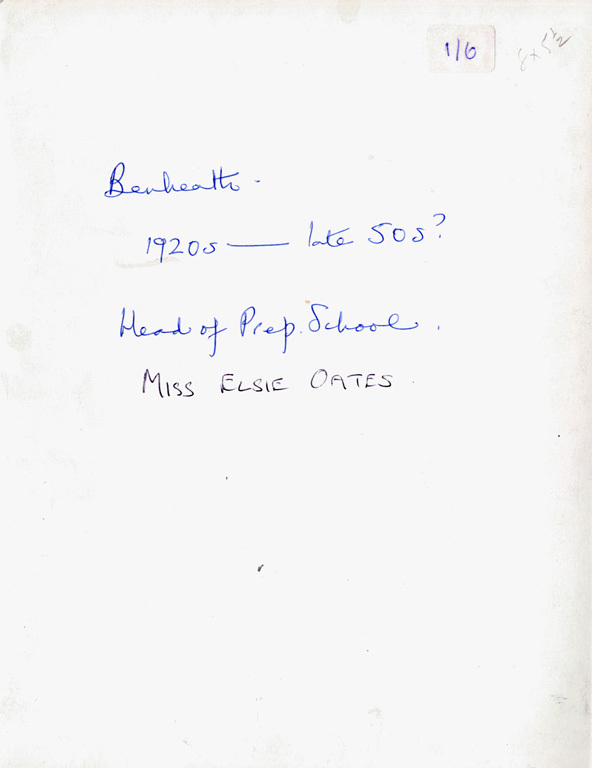 1/6
8 x 5½
Benheath -
1920s — late 50s?
Head of Prep. School.
MISS ELSIE OATES